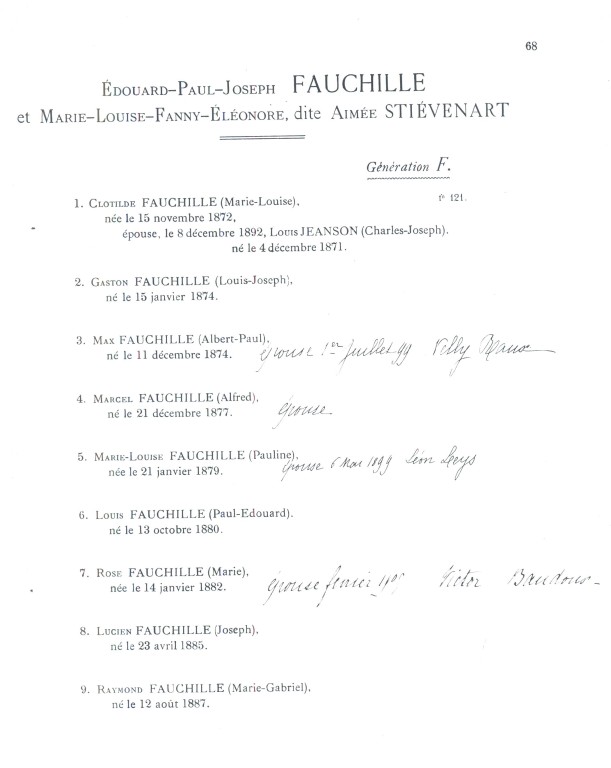 68
ÉDOUARD-PAUL-JOSEPH FAUCHILLE
et MARIE-LOUISE-FANNY-ÉLÉONORE, dite AIMÉE STIÉVENART
Génération F.
1. CLOTILDE FAUCHILLE (Marie-Louise), fº 121.
née le 15 novembre 1872,
épouse, le 8 décembre 1892, LOUIS JEANSON (Charles-Joseph).
né le 4 décembre 1871.
2. GASTON FAUCHILLE (Louis-Joseph),
né le 15 janvier 1874.
3. MAX FAUCHILLE (Albert-Paul),
né le 11 décembre 1874. épouse 1er Juillet 99
4. MARCEL FAUCHILLE (Alfred),
né le 21 décembre 1877. épouse
5. MARIE-LOUISE FAUCHILLE (Pauline),
née le 21 janvier 1879. épouse 6 Mai 1899 Léon
6. LOUIS FAUCHILLE (Paul-Edouard).
né le 13 octobre 1880.
7. ROSE FAUCHILLE (Marie),
née le 14 janvier 1882. épouse février Victor
8. LUCIEN FAUCHILLE (Joseph),
né le 23 avril 1885.
9. RAYMOND FAUCHILLE (Marie-Gabriel),
né le 12 août 1887.